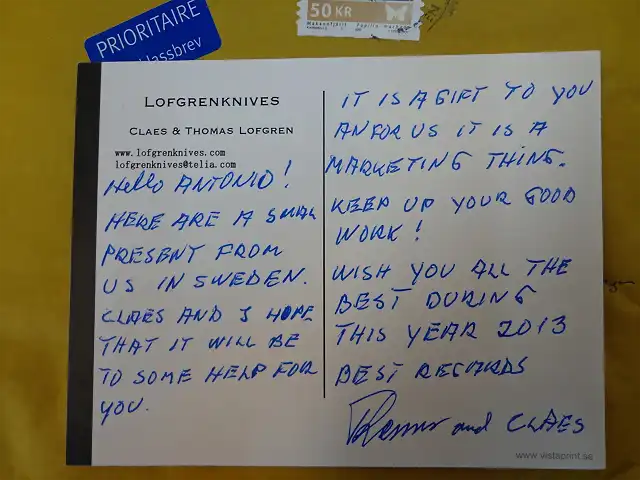 PRIORITAIRE
lassbrev
50 KR
LOFGRENKNIVES
CLAES & THOMAS LOFGREN
www.lofgrenknives.com
lofgrenknives@telia.com
Hello ANTONIO!
HERE ARE A SMAL
PRESENT FROM
US IN SWEDEN.
CLAES AND I HOPE
THAT IT WILL BE
TO SOME HELP FOR
YOU.
IT IS A GIFT TO YOU
AN FOR US IT IS A
MARKETING THING.
KEEP UP YOUR GOOD
WORK!
WISH YOU ALL THE
BEST DURING
THIS YEAR 2013
BEST RECARDS
and CLAES
www.vistaprint.se